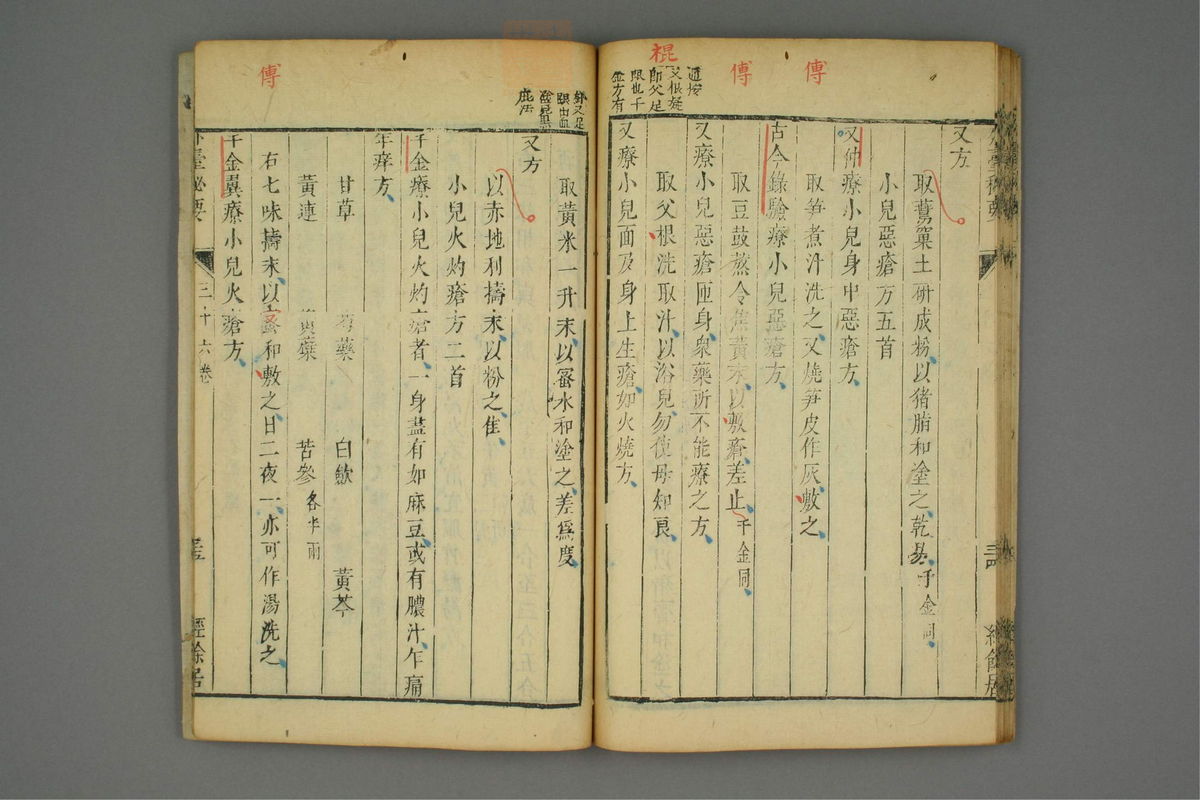 傅
傅
棍
又方
取蔫窠土研成粉以猪脂和塗之乾易千金同
小兒惡瘡方五首
又仲療小兒身中惡瘡方
取笋煮汁洗之又燒笋皮作灰敷之
古今錄驗療小兒惡瘡方
取豆豉蒸令焦黃末以敷瘡差止千金同
又療小兒惡瘡匝身衆藥所不能療之方
取父根洗取汁以浴兒勿使母知良
又療小兒面及身上生瘡如火燒方
又根疑
即父足
也千
金方有
三十四
經餘居
傅
取黃米一升末以蜜水和塗之差爲度
又方
以赤地利擣末以粉之佳
小兒火灼瘡方二首
千金療小兒火灼瘡者一身盡有如麻豆或有膿汁乍痛
乍痒方
甘草 芍藥 白蘞 黃芩
黃連 黃蘗 苦參各半兩
右七味擣末以蜜和敷之日二夜一亦可作湯洗之
千金翼療小兒火瘡方
外臺秘要
三十六卷
三十五
經餘居